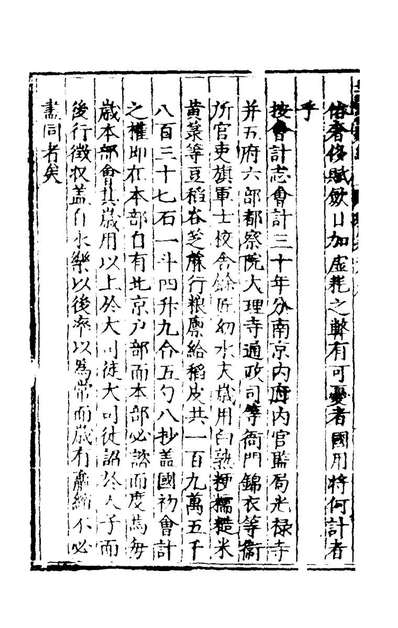 俗奢侈賦斂日加虛耗之弊有可憂者國用將何計者
乎
按會計志會計三十年分南京內府內官監局光祿寺
并五府六部都察院大理寺通政司等衙門錦衣等衛
所官吏旗軍士校舍餘匠幼水夫歲用白熟粳糯糙米
黃菉等豆稻谷芝蔴行粮廩給稻皮共一百九萬五千
八百三十七石一斗四升九合五勺八抄盖國初會計
之權即在本部自有北京戸部而本部必諮而度焉每
歲本部會其歲用以上於大司徒大司徒詔於天子而
後行徵权盖自永樂以後率以為常而歲有贏縮不必
盡同者矣